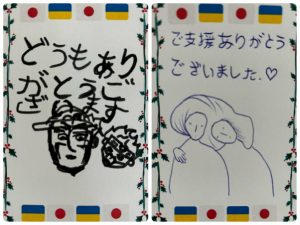 どうもあり
がとうご
ざいます
ご支援ありがとう
ございました.♡